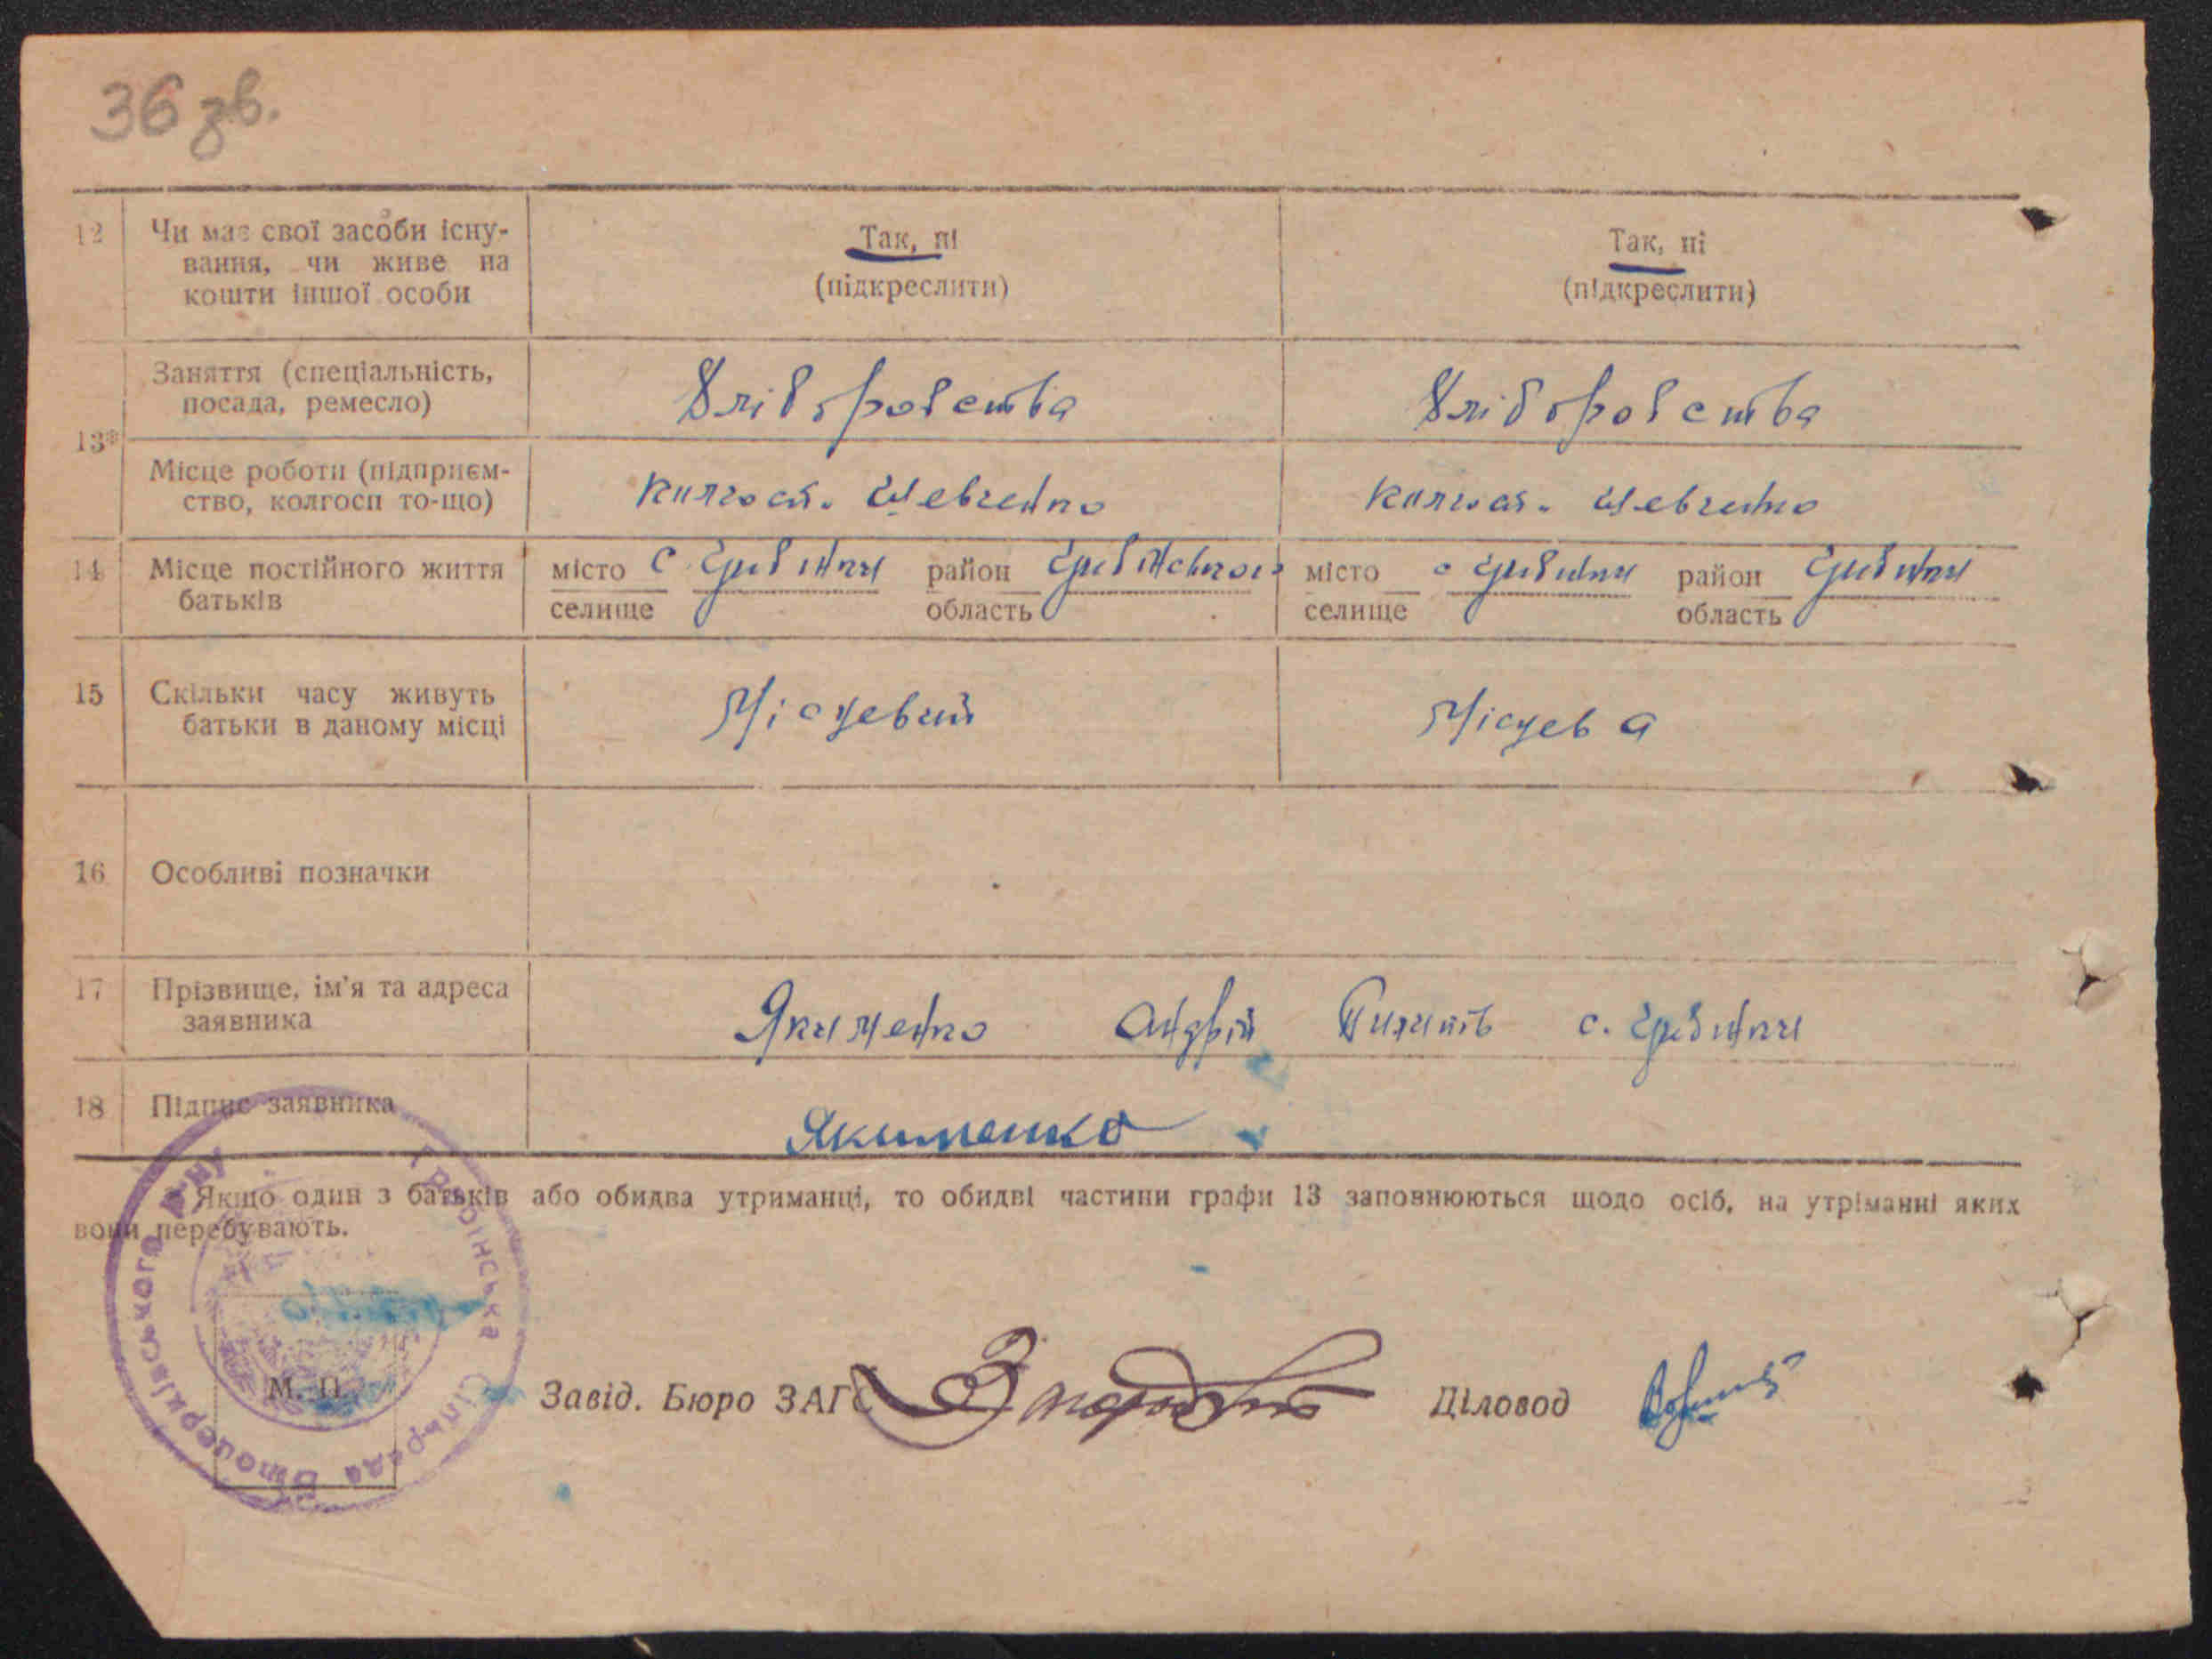 36 зв.
12 Чи має свої засоби існу-
вання, чи живе на
кошти іншої особи
Так, ні
(підкреслити)
Так, ні
(підкреслити)
13*
Заняття (спеціальність,
посада, ремесло)
Хліборобства
Хліборобства
Місце роботи (підприєм-
ство, колгосп то-що)
колгосп. Шевченко
колгосп. Шевченко
14 Місце постійного життя
батьків
місто с Гребінки район
селище область
місто с Гребінки район Гребінки
селище область
15 Скільки часу живуть
батьки в даному місці
Місцевий
Місцева
16 Особливі позначки
17 Прізвище, ім'я та адреса
заявника
Якименко Андрій с. Гребінки
18 Підпис заявника
Якименко
Якщо один з батьків або обидва утриманці, то обидві частини графи 13 заповнюються щодо осіб, на утріманні яких
вони перебувають.
М. П.
Завід. Бюро ЗАГС
Діловод
Сільрада